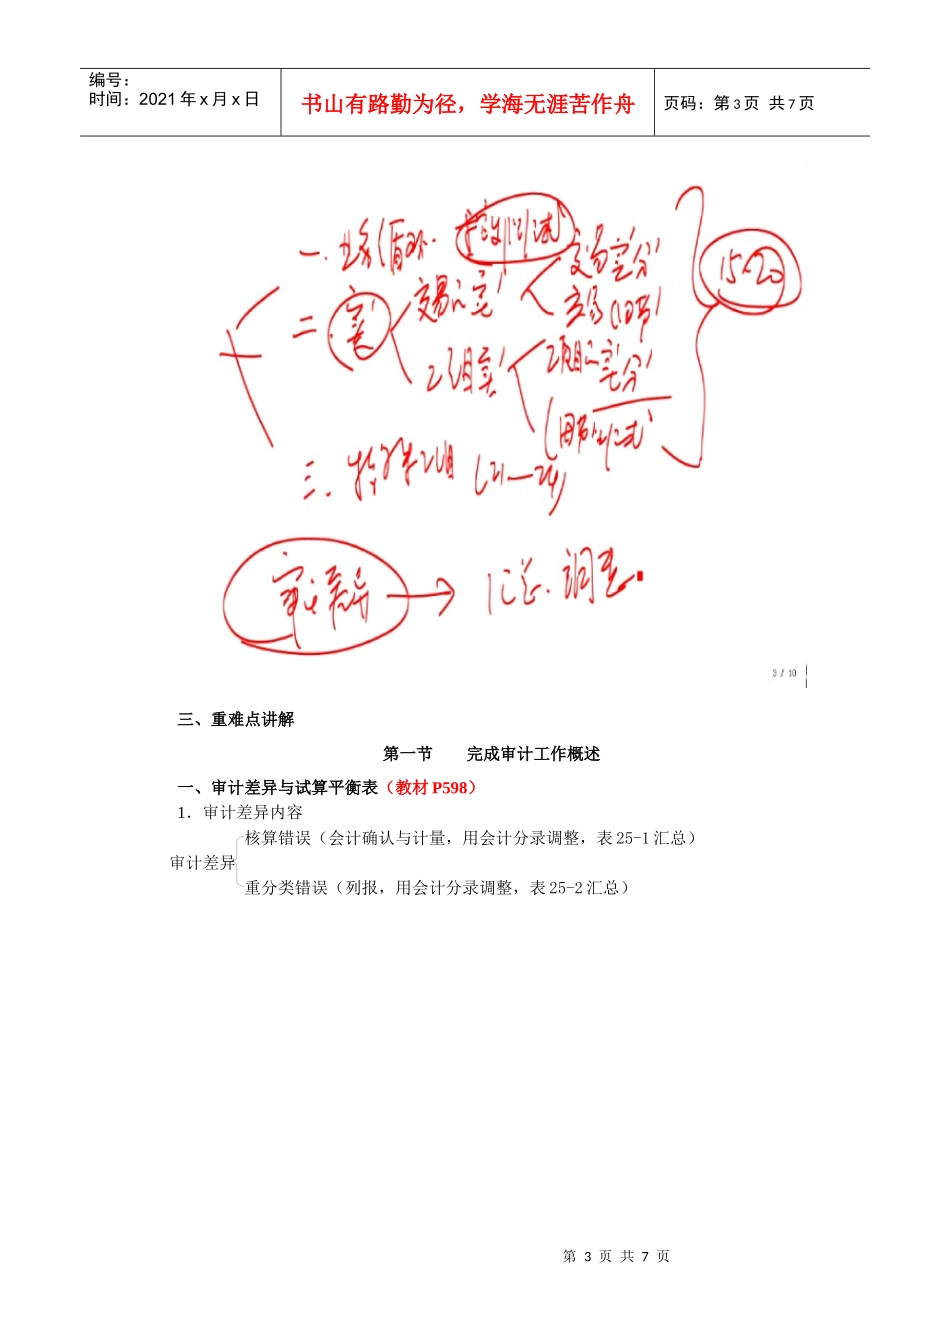 编号：
时间：2021 年 x 月 x 日
书山有路勤为径，学海无涯苦作舟
页码：第 3 页 共 7 页
一.业务循环.
测试
二.
交易
15-20
三.特殊项目 (21—24)
审计差异 → 汇总.调整
3 / 10
三、重难点讲解
第一节 完成审计工作概述
一、审计差异与试算平衡表（教材 P598）
1．审计差异内容
核算错误（会计确认与计量，用会计分录调整，表 25-1 汇总）
审计差异
重分类错误（列报，用会计分录调整，表 25-2 汇总）
第 3 页 共 7 页